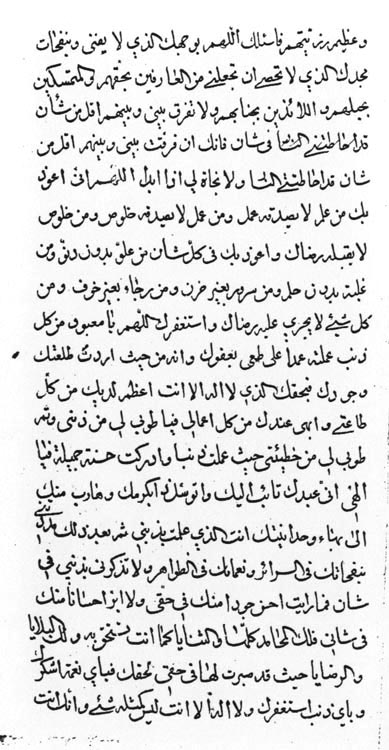 وعظيم رزيتهم فاسئلك اللهم بوجهك الذي لا يفنى وبنفحات
مجدك الذي لا تحصى ان تجعلني من العارفين بحقهم والمتمسكين
بحبلهم واللائذين بجنابهم ولا تفرق بيني وبينهم اقل من شان
قد احاطتني في شان فانك ان فرقت بيني وبينهم اقل من
شان قد احاطتني ولا نجاة لي اذا ابدا اللهم اني اعوذ
بك من علم لا يصدقه عمل ومن عمل لا يصدقه خلوص ومن خلوص
لا يقبله رضاك واعوذ بك في كل شان من علو بدون دنو ومن
غلبة بدون حلم ومن سرور بغير حزن ومن رجاء بغير خوف ومن
كل شيء لا يجري عليه رضاك واستغفرك اللهم يا معبودي من كل
ذنب عملته عمدا على طمعي بعفوك وانه من حيث اردت طلعتك
وجودك فبحقك الذي لا اله الا انت اعظم لديك من كل
طاعتي وابهى عندك من كل اعمالي فيا طوبى لي من ذنبي وثم
طوبى لي من خطيئتي حيث عملت ذنبا وادركت حسنة جميلة فيا
الهي انى عبدك تائب اليك واتوسل بكرمك وهارب منك
الى بهاء وحدانيتك انت الذي علمت بذنبي ثم بعد ذلك
بنفحاتك في السرائر ونعمائك في الظواهر ولا تذكرني بذنبي في
شان فما رايت احسن جودا منك في حقي ولا ابر احسانا منك
في شاني فلك المحامد كلها والثنايا كما انت تستحق به ولك البلايا
والرضايا حيث قد صبرت لها في حقي لحقك فباي نعمة اشكرك
وباي ذنب استغفرك ولا اله الا انت ليس كمثله شيء وانك انت